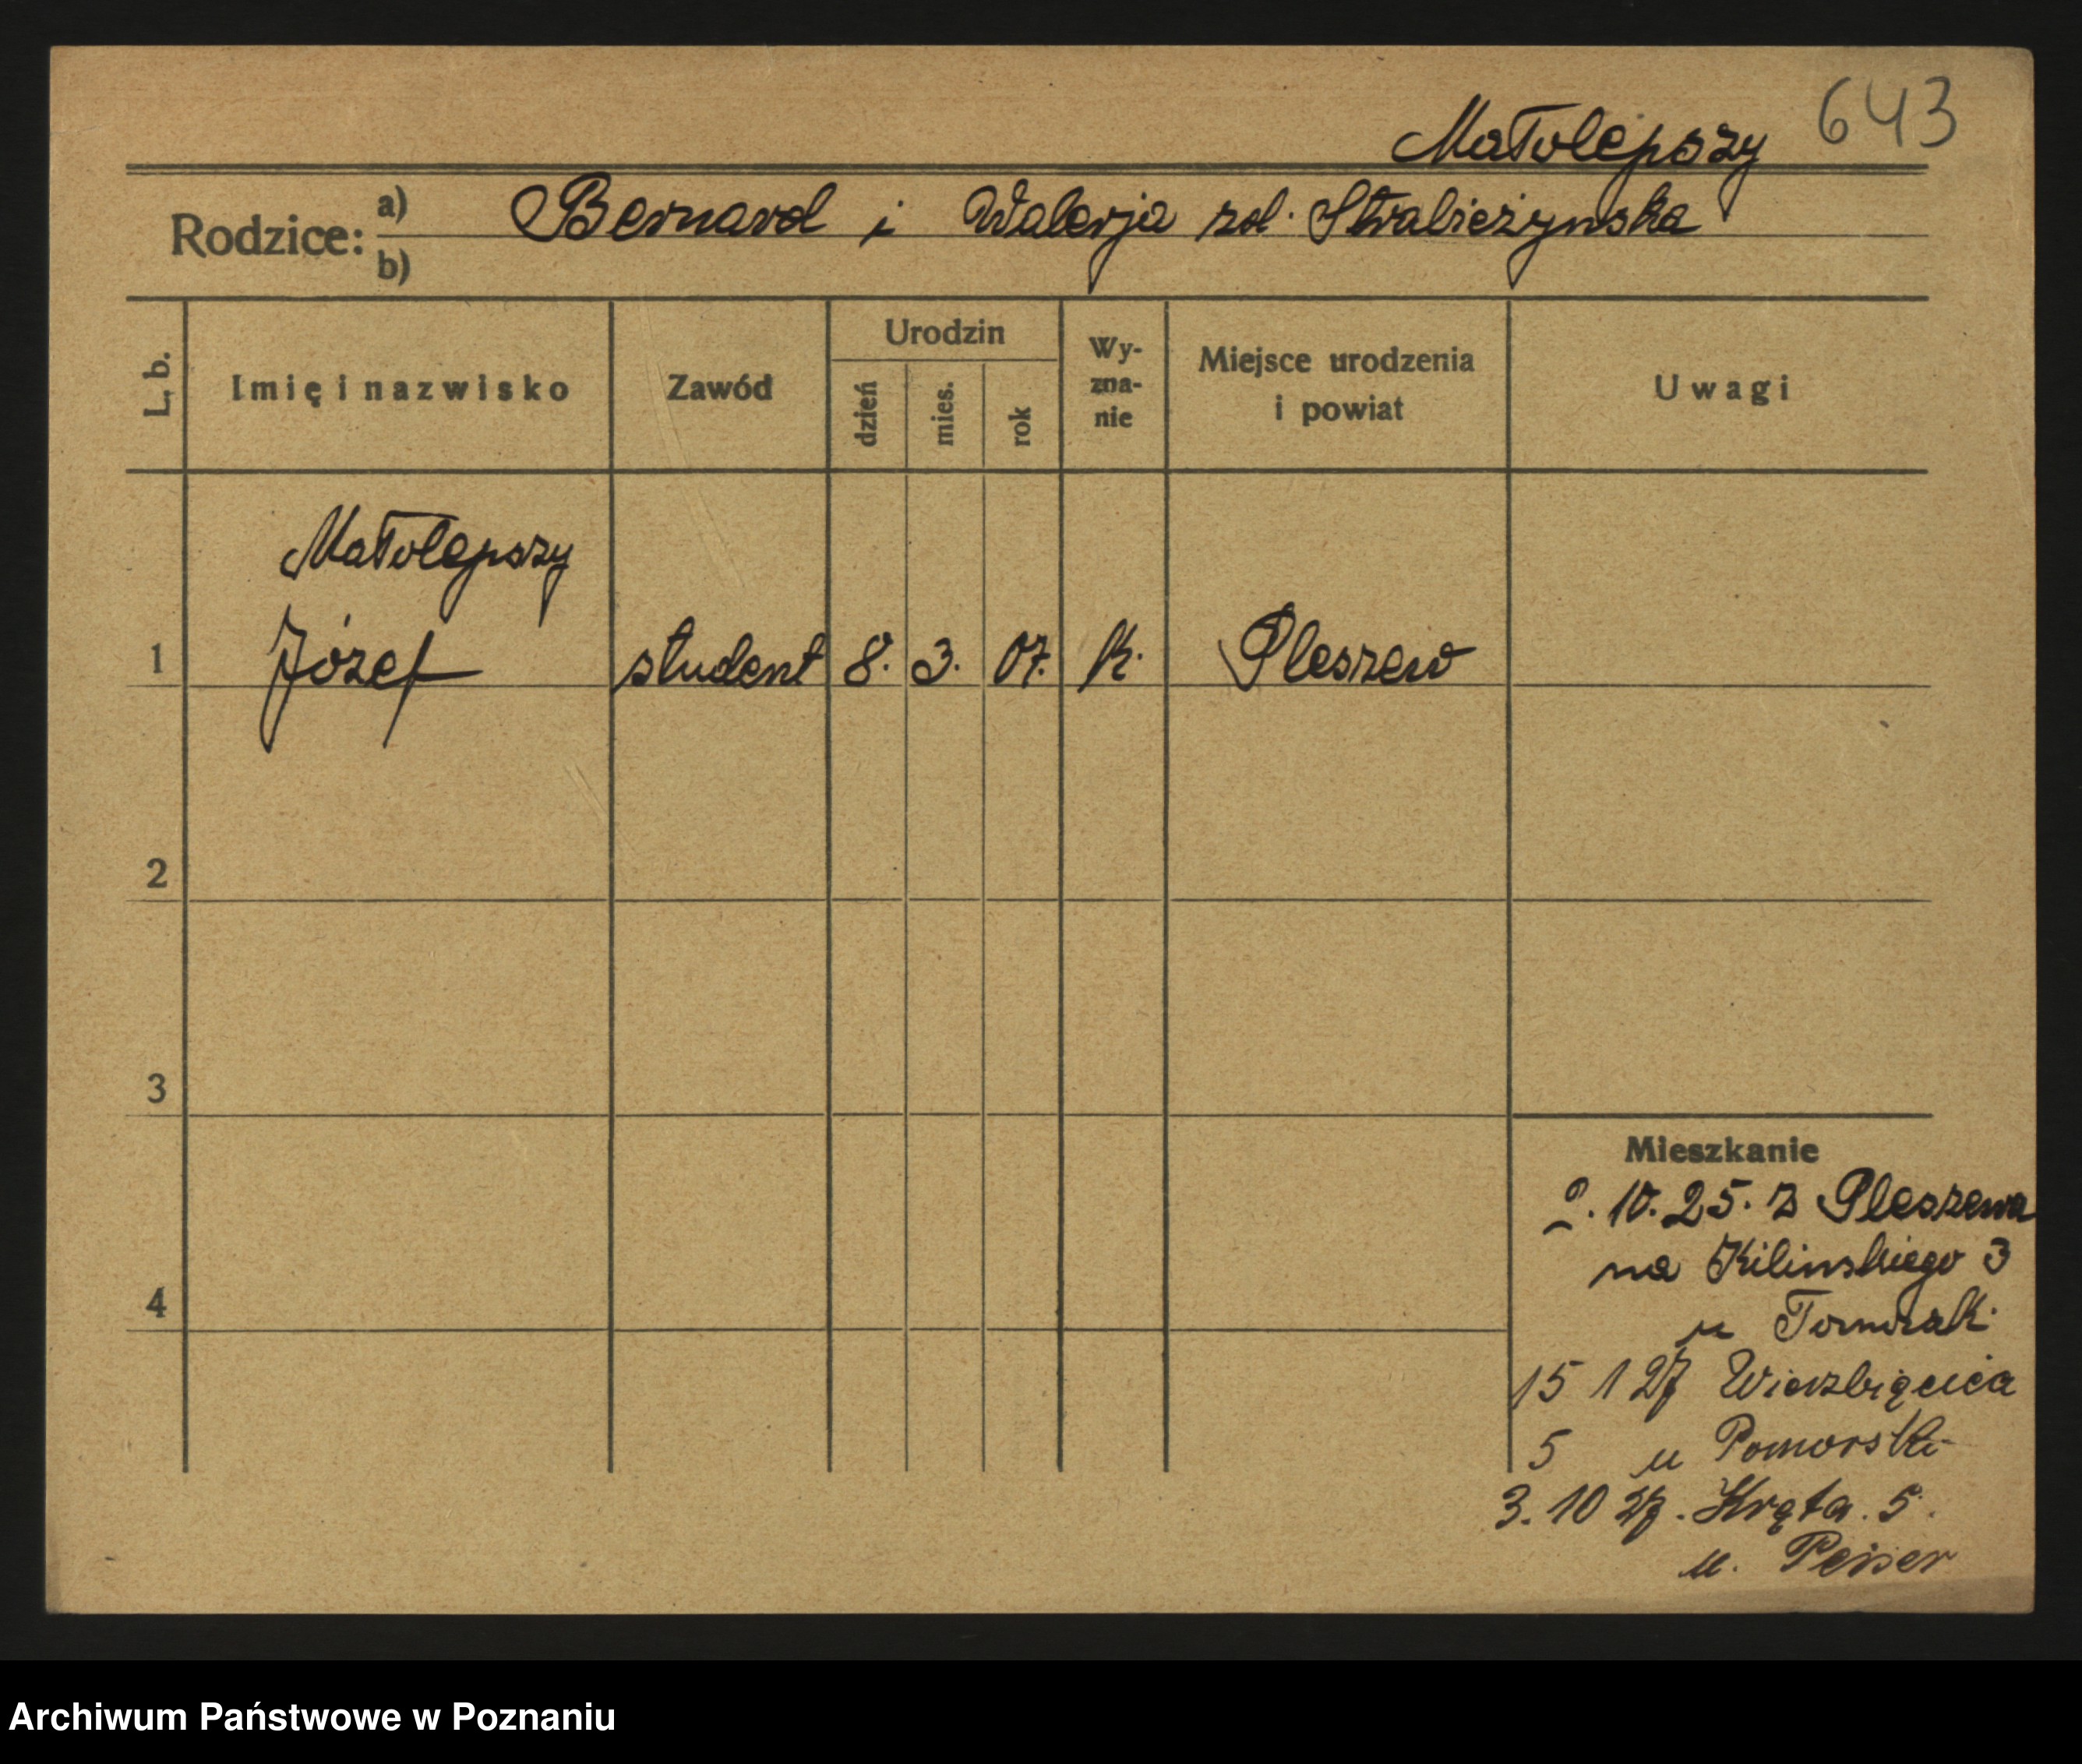 643
Małolepszy
Rodzice: a) Bernard i Walerja
b)
L. b.
Imię i nazwisko
Zawód
Urodzin
dzień
mies.
rok
Wy-
zna-
nie
Miejsce urodzenia
i powiat
Uwagi
Małolepszy
1 Józef student 8. 3. 07. k. Pleszew
2
3
4
Mieszkanie
2. 10. 25. z Pleszewa
na Kilinskiego 3
u
15 1 27 Wierzbięcica
5 u Pomorski
3. 10 27. Kręta. 5.
u. Peiser
Archiwum Państwowe w Poznaniu